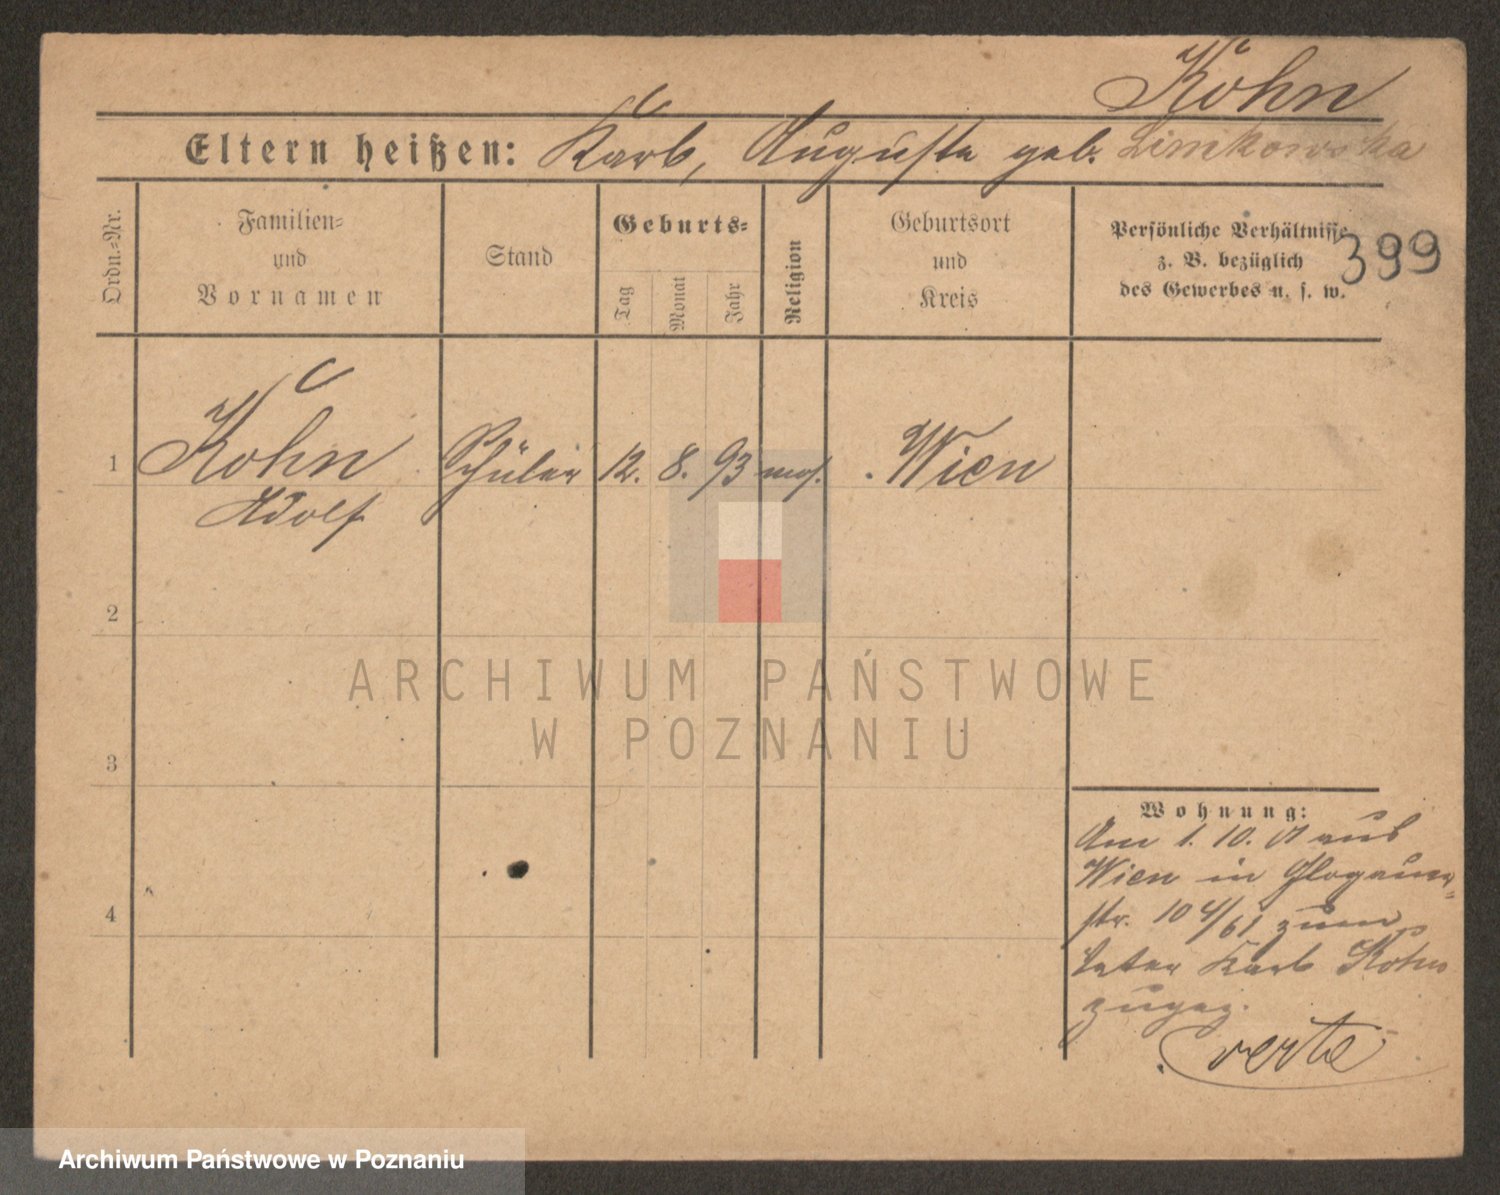 Kohn
Eltern heißen: Karl, Auguste geb. Limkowska
Ordn.=Nr.
Familien=
und
Vornamen
Stand
Geburts=
Tag
Monat
Jahr
Religion
Geburtsort
und
Kreis
Persönliche Verhältnisse
z. B. bezüglich
des Gewerbes u. s. w.
399
1
Kohn
Adolf
Schüler
12. 8. 93
mos.
Wien
2
3
4
Wohnung:
Am 1. 10. 01 aus
Wien in Glogauer=
str. 104/61 zum
Vater Karl Kohn
zugez.
verte
ARCHIWUM PAŃSTWOWE
W POZNANIU
Archiwum Państwowe w Poznaniu